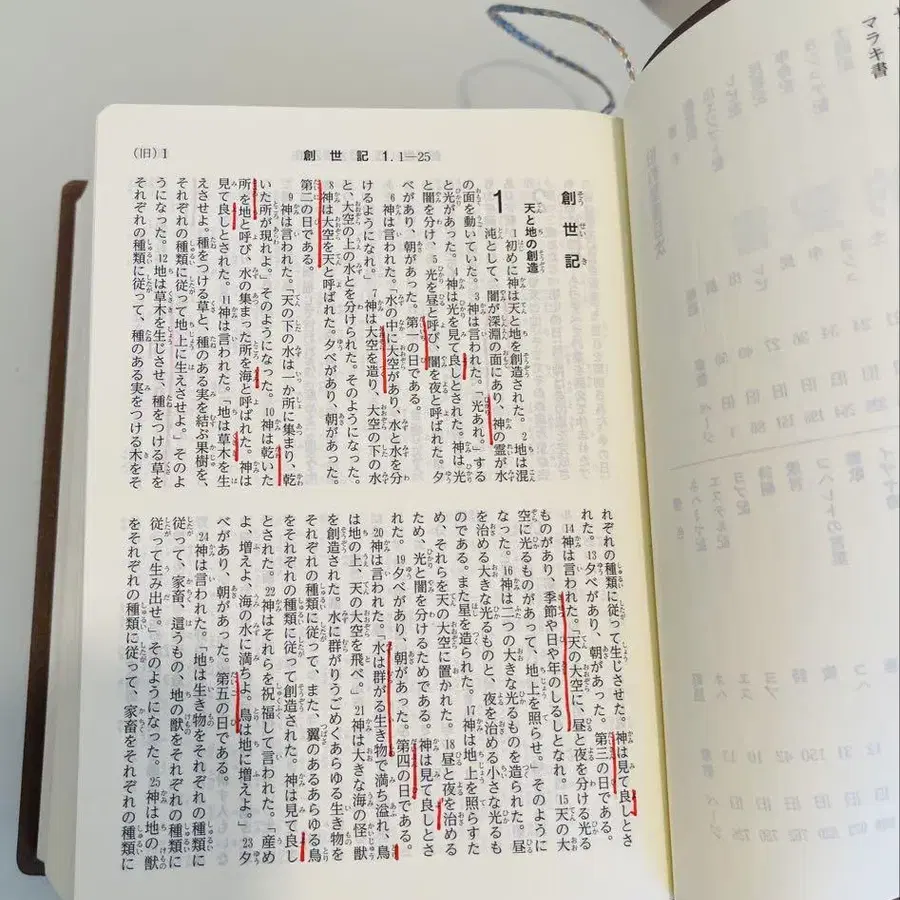 マラキ書
（旧）1
創世記 1. 1―25
創世記
天と地の創造
1
1 初めに神は天と地を創造された。2 地は混
沌として、闇が深淵の面にあり、神の霊が水
の面を動いていた。3 神は言われた。「光あれ。」する
と光があった。4 神は光を見て良しとされた。神は光
と闇を分け、5 光を昼と呼び、闇を夜と呼ばれた。夕
べがあり、朝があった。第一の日である。
6 神は言われた。「水の中に大空があり、水と水を分
けるようになれ。」7 神は大空を造り、大空の下の水
と、大空の上の水とを分けられた。そのようになった。
8 神は大空を天と呼ばれた。夕べがあり、朝があった。
第二の日である。
9 神は言われた。「天の下の水は一か所に集まり、乾
いた所が現れよ。そのようになった。10 神は乾いた
所を地と呼び、水の集まった所を海と呼ばれた。神は
見て良しとされた。11 神は言われた。「地は草木を生
えさせよ。種をつける草と、種のある実を結ぶ果樹を、
それぞれの種類に従って地上に生えさせよ。」そのよ
うになった。12 地は草木を生じさせ、種をつける草を
それぞれの種類に従って、種のある実をつける木をそ
れぞれの種類に従って生じさせた。神は見て良しとさ
れた。13 夕べがあり、朝があった。第三の日である。
14 神は言われた。「天の大空に、昼と夜を分ける光る
ものがあり、季節や日や年のしるしとなれ。15 天の大
空に光るものがあって、地上を照らせ。」そのように
なった。16 神は二つの大きな光るものを造られた。昼
を治める大きな光るものと、夜を治める小さな光るも
のである。また星を造られた。17 神は地上を照らすた
め、それらを天の大空に置かれた。18 昼と夜を治める
ため、光と闇を分けるためである。神は見て良しとさ
れた。19 夕べがあり、朝があった。第四の日である。
20 神は言われた。「水は群がる生き物で満ち溢れ、鳥
は地の上、天の大空を飛べ。」21 神は大きな海の怪獣
を創造された。水に群がりうごめくあらゆる生き物を
それぞれの種類に従って、また、翼のあるあらゆる鳥
をそれぞれの種類に従って創造された。神は見て良し
とされた。22 神はそれらを祝福して言われた。「産め
よ、増えよ、海の水に満ちよ。鳥は地に増えよ。」23 夕
べがあり、朝があった。第五の日である。
24 神は言われた。「地は生き物をそれぞれの種類に
従って、家畜、這うもの、地の獣をそれぞれの種類に
従って生み出せ。」そのようになった。25 神は地の獣
をそれぞれの種類に従って、家畜をそれぞれの種類に